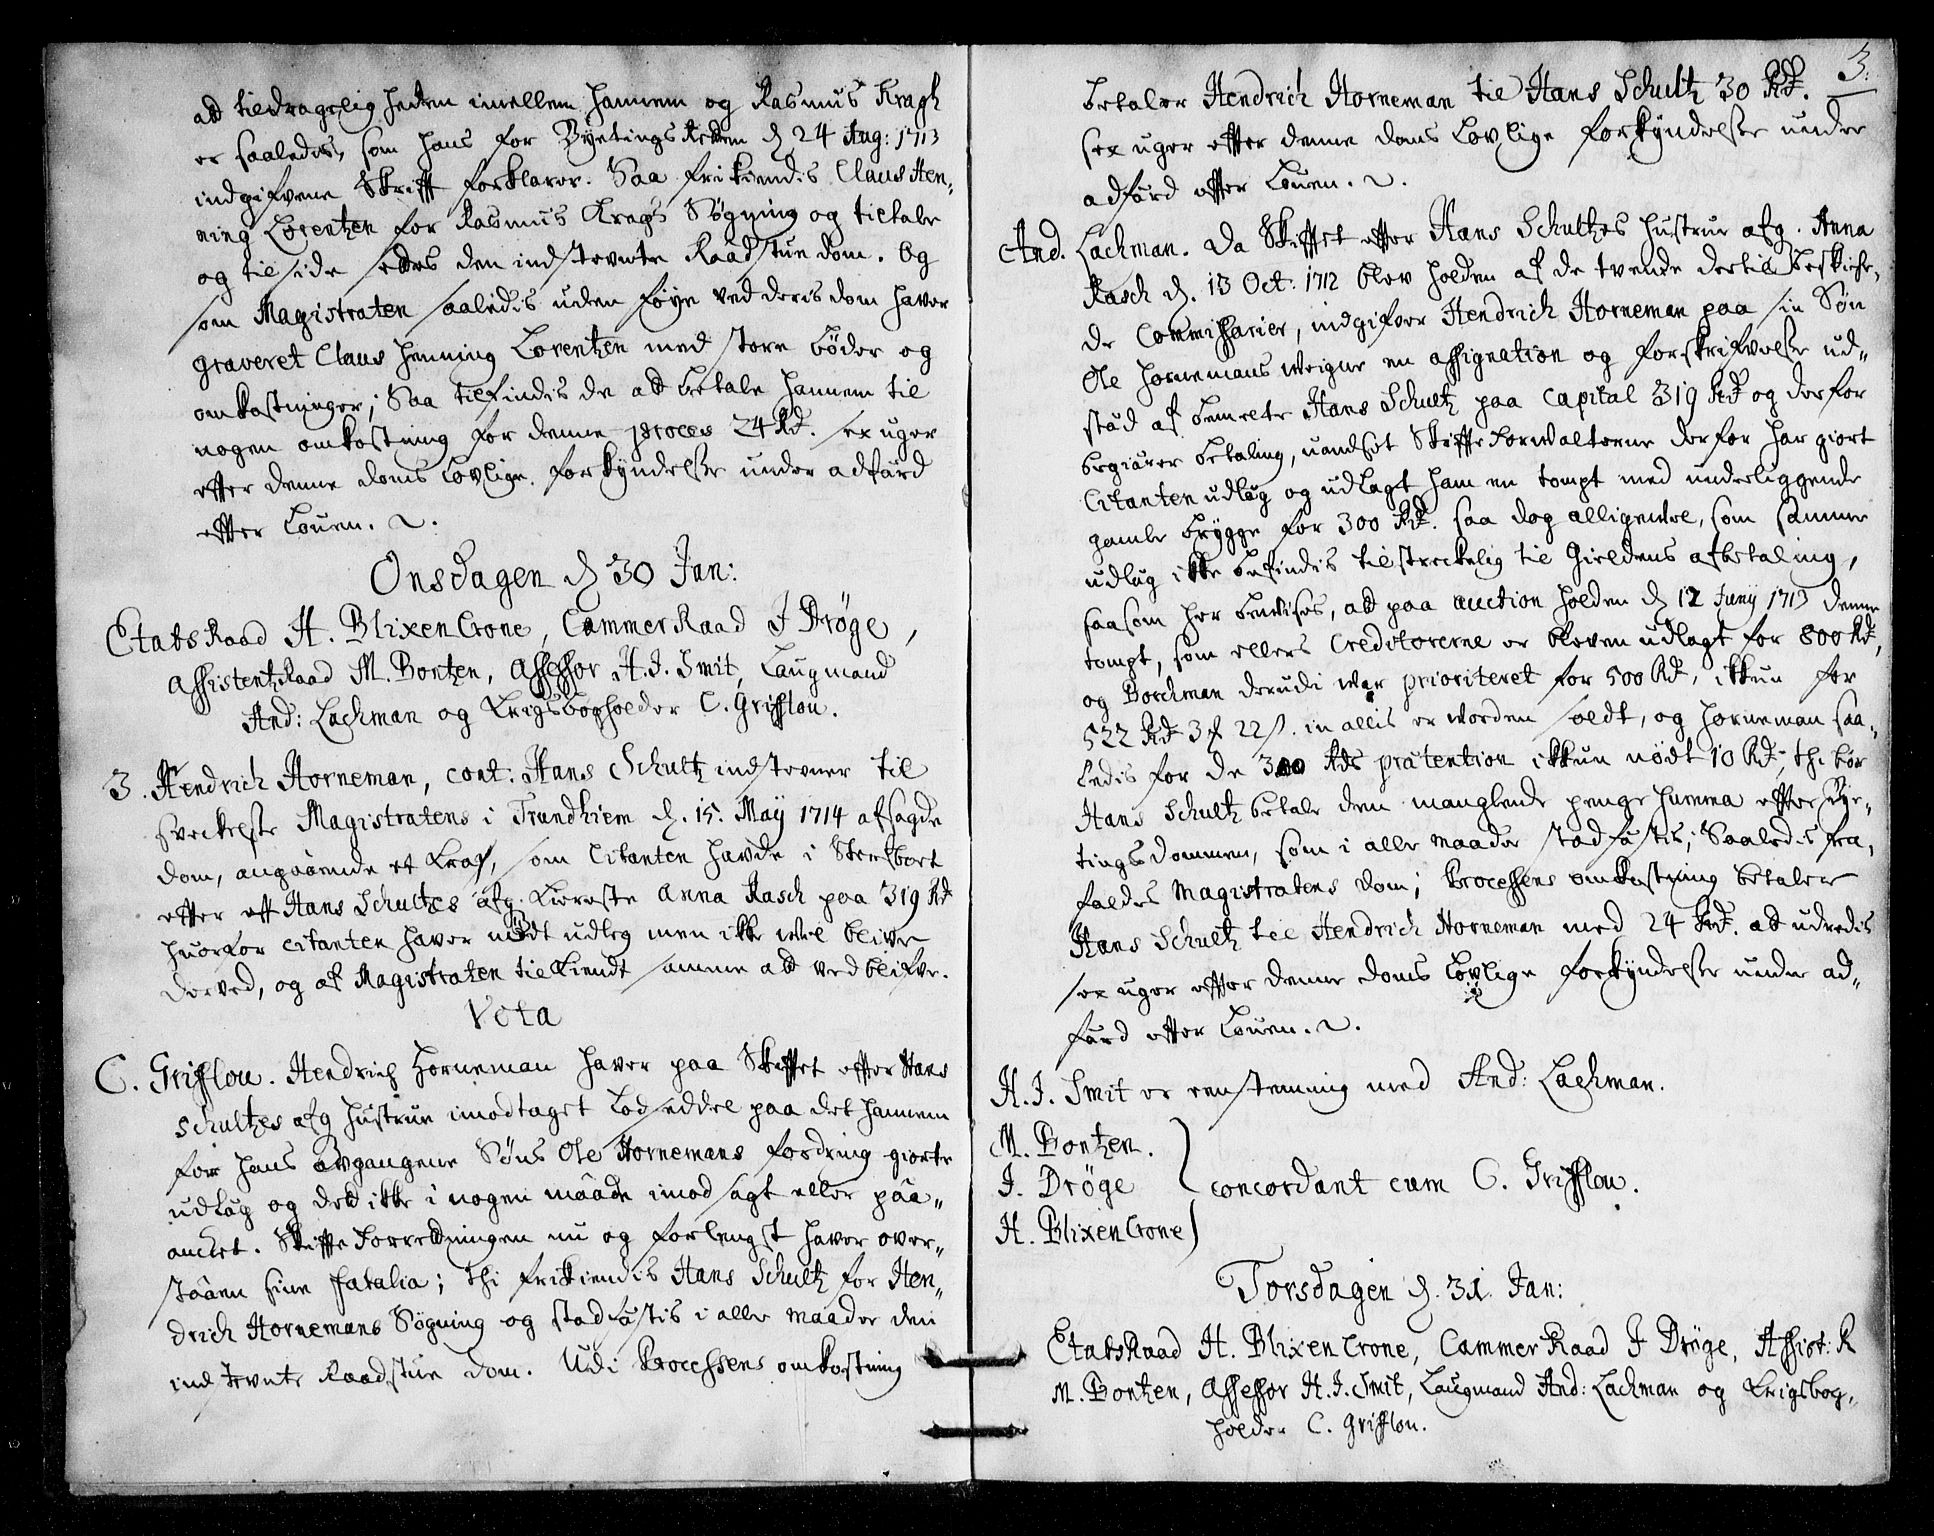 at tildragelig heden imellem hannem og Rasmus Kragh
er saaledis, som hans for Byetings Retten d. 24 Aug: 1713
indgifvene Skrift forklarer. Saa frikiendis Claus Hen-
ning Lorentzen for Rasmus Krags Søgning og tiltale
og til side settes den indstevnte Raadstue dom. Og
som Magistraten saaledis uden føye ved deris dom haver
graveret Claus Henning Lorentzen med store bøder og
omkostninger; Saa tilfindis de at betale hannem til
nogen omkostning for denne proces 24 Rd. sex uger
efter denne doms Lovlige forkyndelse under adfärd
efter Louen.
Onsdagen d. 30 Jan:
EtatsRaad H. BlixenCrone, CammerRaad J Dröge,
AssistentzRaad M. Bontzen, Assessor H. J. Smit, Laugmand
And: Lachman og Krigsbogholder C. Grifflou.
3. Hendrich Horneman, cont: Hans Schultz indstevner til
sveckelse Magistratens i Trundhiem d. 15. Maÿ 1714 afsagde
dom, angaaende et Kraf, som Citanten havde i Sterfboet
efter Hans Schultzes afg. Kiereste Anna Rasch paa 319 Rd
huorfor citanten haver nødt udleg men ikke vil blive
derved, og af Magistraten tilkiendt samme at vedblifve.
Vota
C. Grifflou. Hendrich Horneman haver paa Skiftet efter Hans
Schultzes afg Hustrue imodtaget Lodseddel paa det hannem
for hans avgangene Søns Ole Hornemans fordring giorte
udläg og det ikke i nogen maade imodsagt eller paa-
ancket. Skifte Forretningen nu og forlengst haver over-
staaen sine fatalia; thi frikiendis Hans Schultz for Hen-
drich Hornemans Søgning og stadfästis i alle maader den
indstevnte Raadstue dom. Udi Processens omkostning
3.
betaler Hendrich Horneman til Hans Schultz 30 Rd.
sex uger efter denne doms Lovlige forkyndelse under
adfärd efter Louen.
And. Lachman. Da Skiftet efter Hans Schultzes Hustrue afg. Anna
Rasch d. 13 Oct. 1712 blev holden af de tvende dertil beskicke-
de Commissarier, indgifver Hendrich Horneman paa sin Søn
Ole Hornemans weigne en assignation og forskrifvelse ud-
städ af bemelte Hans Schultz paa Capital 319 Rd og derfor
begiärer betaling, uanset Skifteforwalterne derfor har giort
Citanten udläg og udlagt ham en tompt med underliggende
gamle brygge for 300 Rd. saa dog alligevel, som samme
udläg ikke befindis tilstreckelig til Gieldens afbetaling,
saasom her bevises, at paa auction holden d 12 Juny 1713 denne
tompt, som ellers Creditorerne er bleven udlagt for 800 Rd,
og Borchman derudi var prioriteret for 500 Rd, ikkun for
522 Rd 3 ₰ 22 s. in allis er worden soldt, og Horneman saa-
ledis for de 300 Rds prætention ikkun nødt 10 Rd; thi bør
Hans Schultz betale den manglende penge Summa efter Bye-
tingsdommen, som i alle maader stadfästis; Saaledis fra-
faldes Magistratens dom; Processens omkostning betaler
Hans Schultz til Hendrich Horneman med 24 Rd. at udredis
sex uger efter denne doms Lovlige forkyndelse under ad-
färd efter Louen.
H. J. Smit er eenstemmig med And: Lachman.
M. Bontzen.
J. Dröge concordant cum C. Grifflou.
H. BlixenCrone
Torsdagen d. 31. Jan:
EtatsRaad H. BlixenCrone, CammerRaad J Dröge, Assist: R
M. Bontzen, Assessor H. J. Smit, Laugmand And: Lachman og Krigsbog-
holder C. Grifflou.